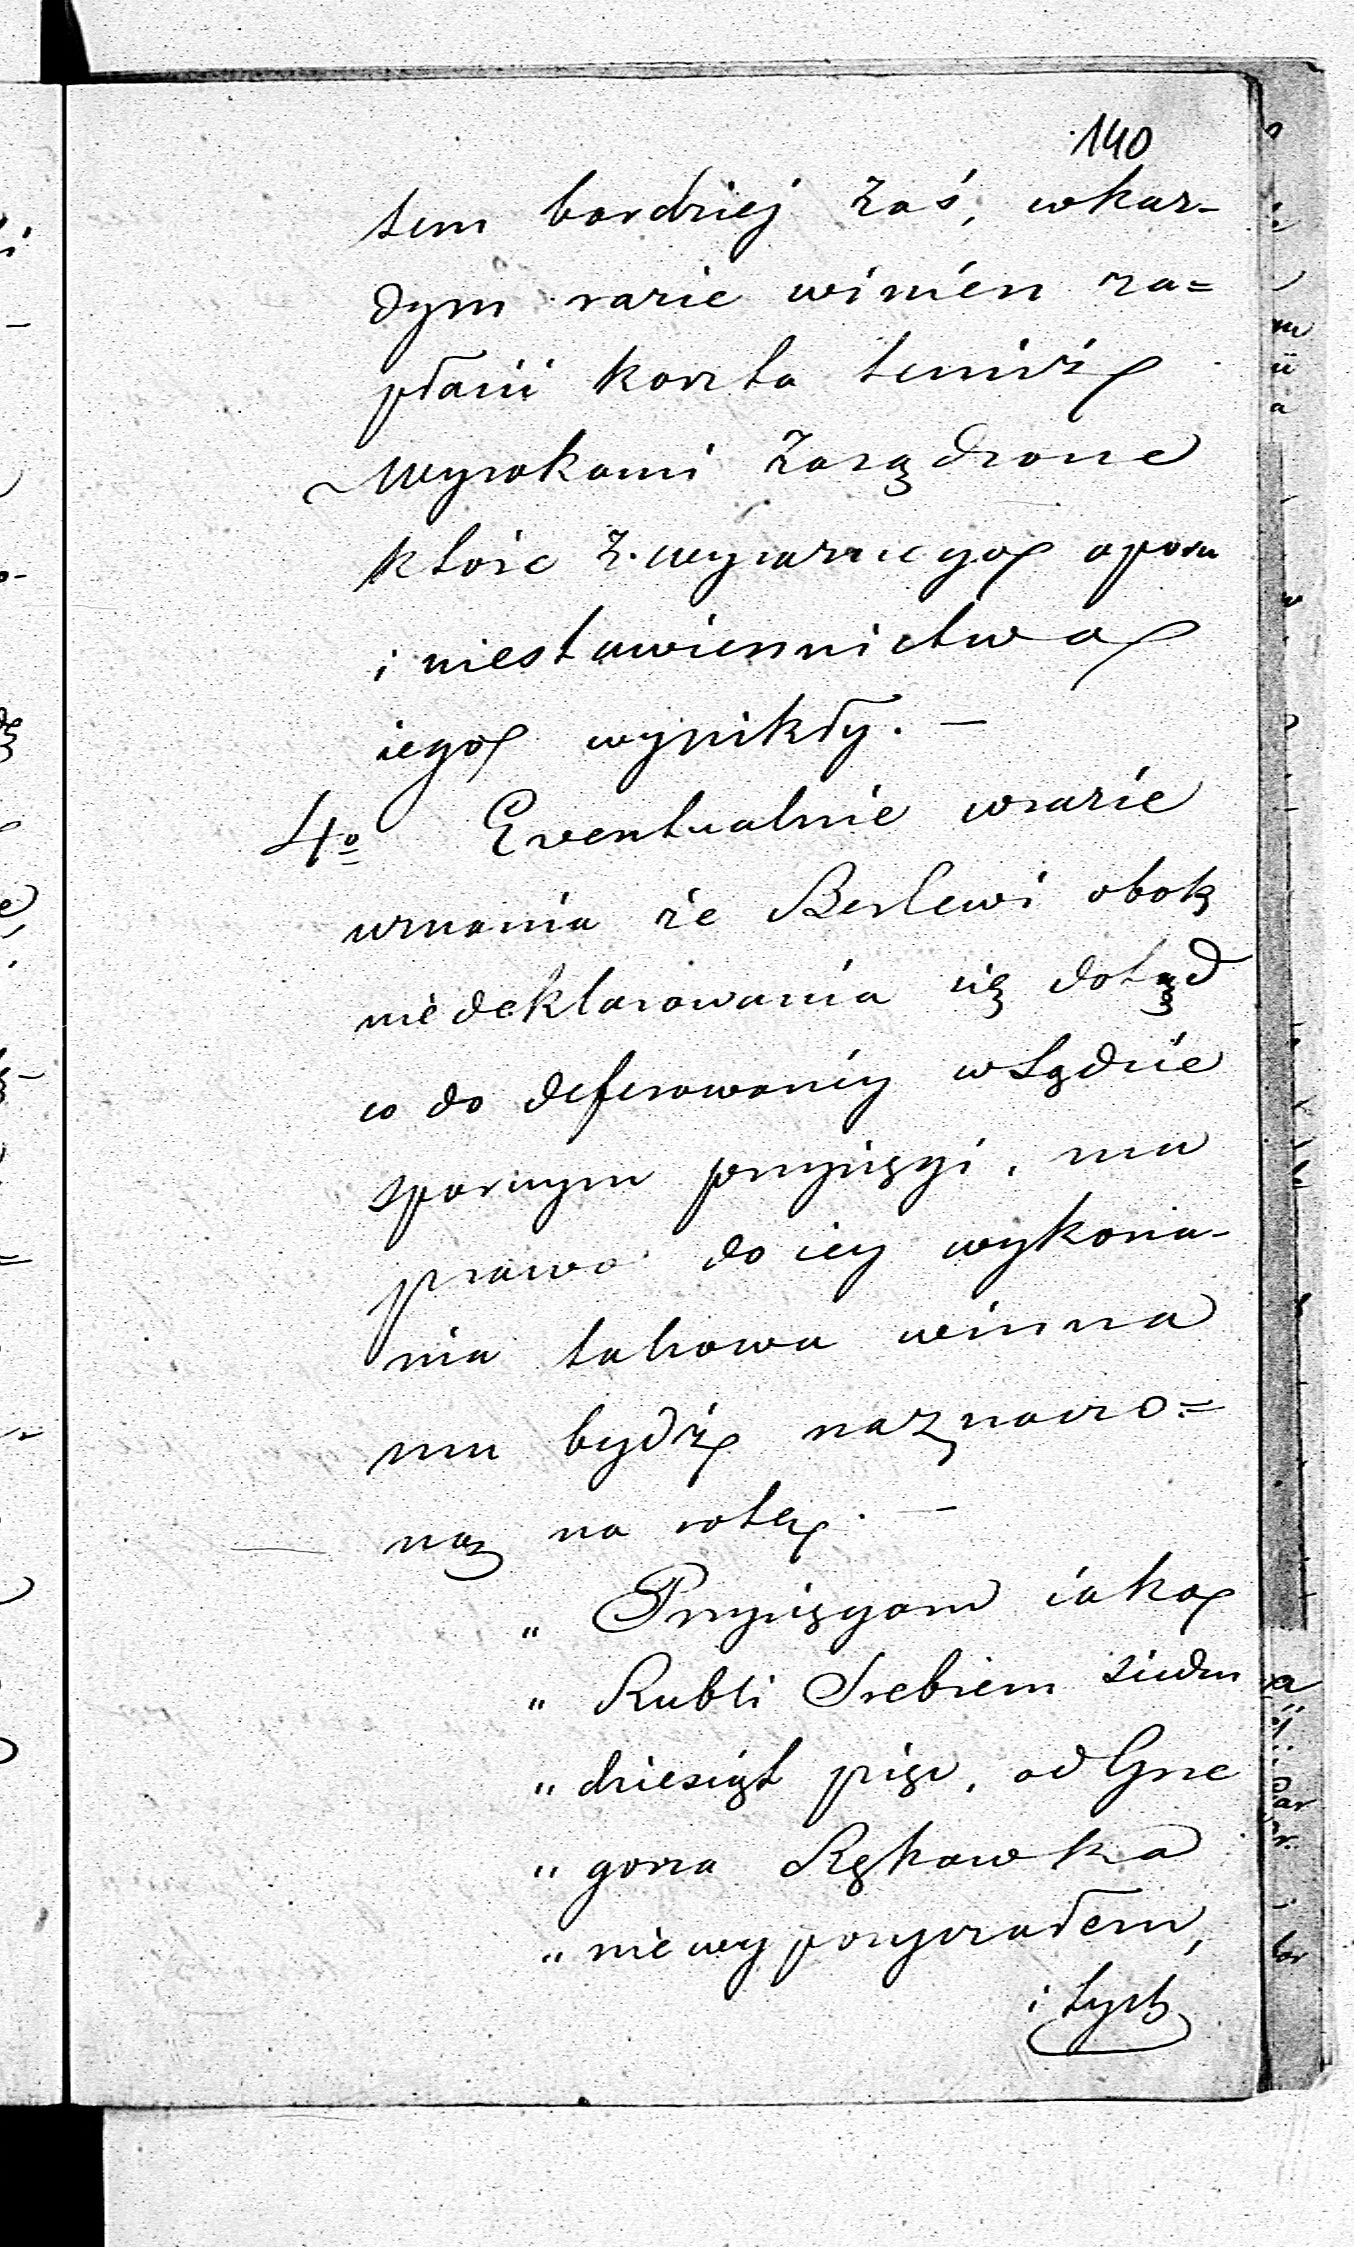 140
tem bardziej zaś, wkaż-
dym razie winien za=
płacić koszta temiż
wyrokami zasądzone
które z wyraznego oporu
i niestawiennictwa
iego wynikły. —
4o Eventualnie wrazie
uznania że Berlewi obok
niedeklarowania się dotąd
co do deferowaney wSądzie
spornym przysięgi, ma
prawo do iey wykona-
nia takowa winna
mu bydź naznaczo=
na na rotę. —
„ Przysięgam iako
„ Rubli Srebrem siedm
„ dziesiąt pięć, od Grze
„ gorza Rękawka
„ niewypożyczałem,
i tych